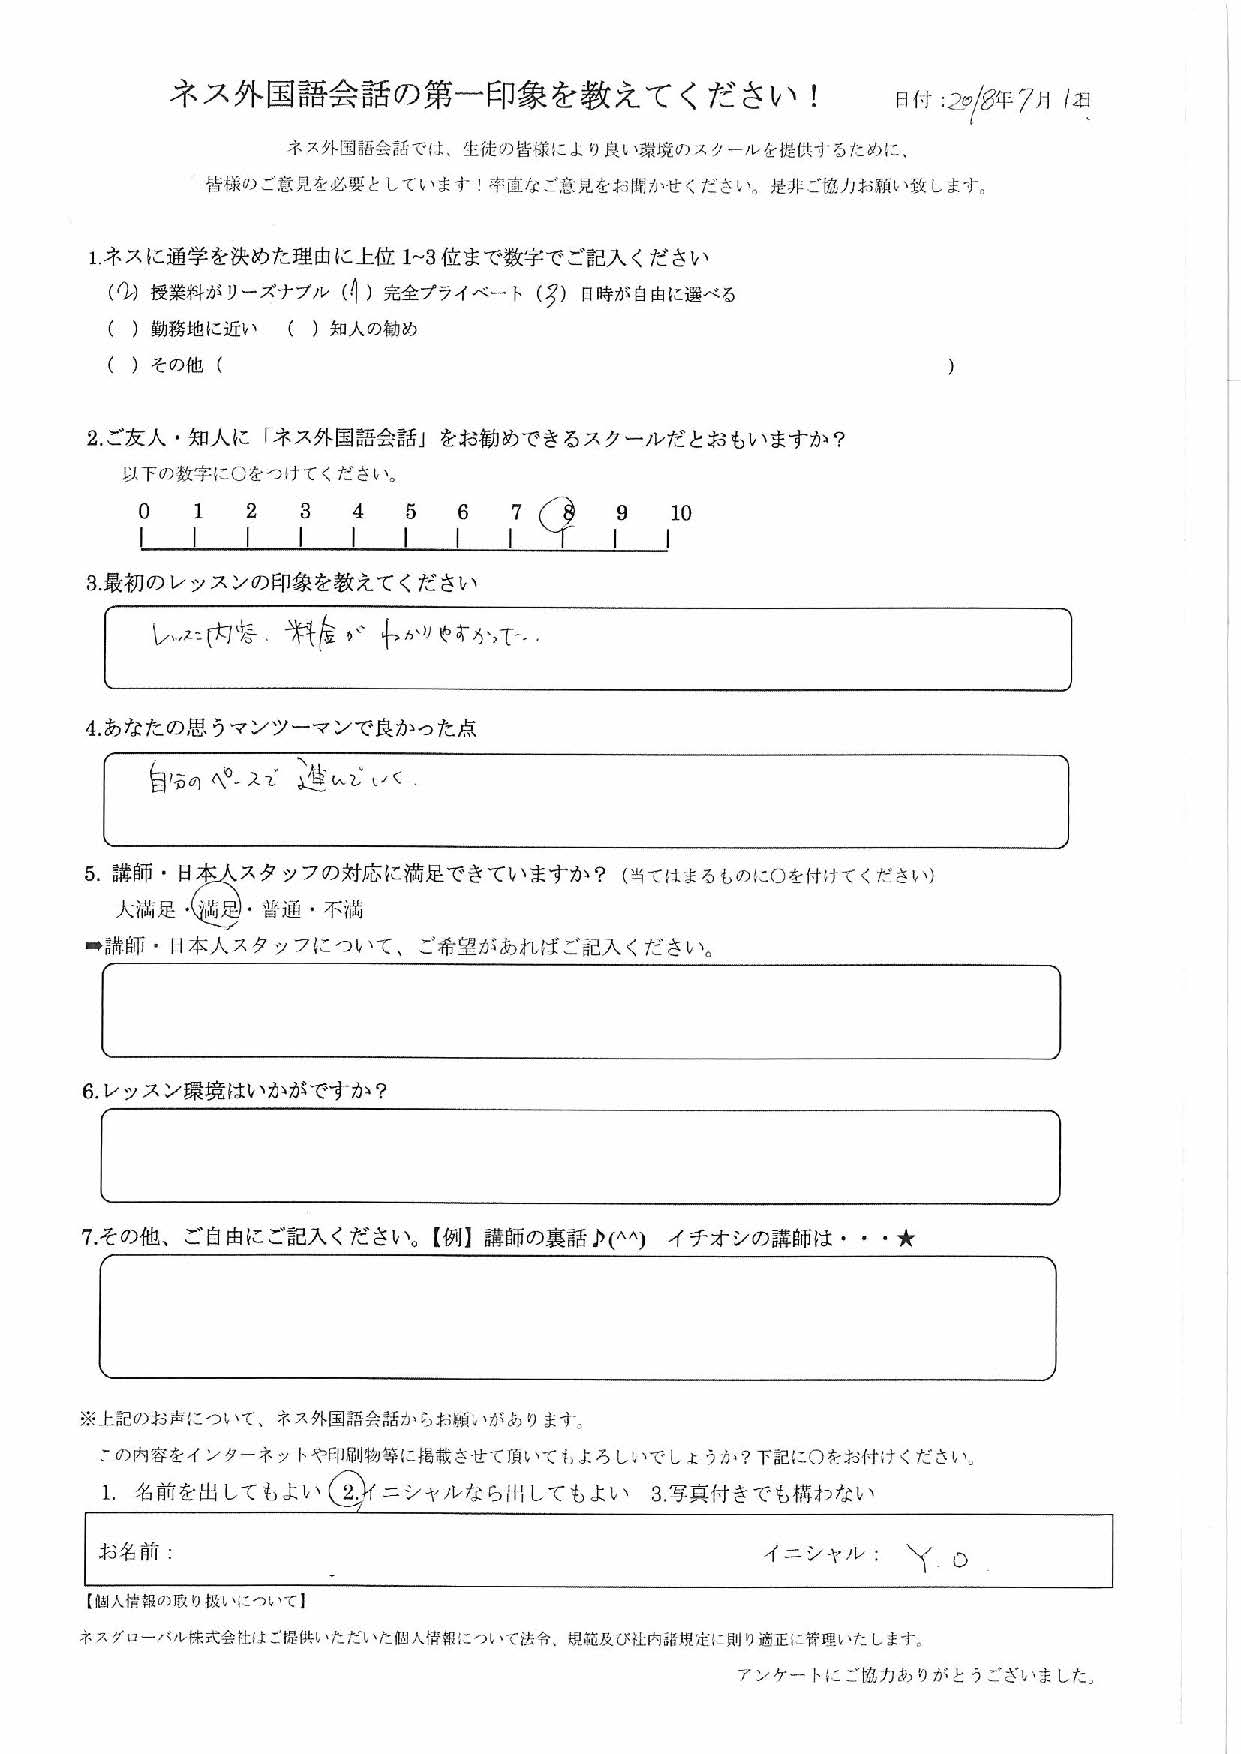 ネス外国語会話の第一印象を教えてください！
日付：2018年7月1日
ネス外国語会話では、生徒の皆様により良い環境のスクールを提供するために、
皆様のご意見を必要としています！率直なご意見をお聞かせください。是非ご協力お願い致します。
1.ネスに通学を決めた理由に上位1~3位まで数字でご記入ください
（2）授業料がリーズナブル（1）完全プライベート（3）日時が自由に選べる
（ ）勤務地に近い （ ）知人の勧め
（ ）その他（ ）
2.ご友人・知人に「ネス外国語会話」をお勧めできるスクールだとおもいますか？
以下の数字に○をつけてください。
0 1 2 3 4 5 6 7 8 9 10
3.最初のレッスンの印象を教えてください
レッスン内容、料金がわかりやすかって..
4.あなたの思うマンツーマンで良かった点
自分のペースで進んでいく.
5. 講師・日本人スタッフの対応に満足できていますか？（当てはまるものに○を付けてください）
大満足・満足・普通・不満
➡講師・日本人スタッフについて、ご希望があればご記入ください。
6.レッスン環境はいかがですか？
7.その他、ご自由にご記入ください。【例】講師の裏話♪(^^) イチオシの講師は・・・★
※上記のお声について、ネス外国語会話からお願いがあります。
この内容をインターネットや印刷物等に掲載させて頂いてもよろしいでしょうか？下記に○をお付けください。
1. 名前を出してもよい 2.イニシャルなら出してもよい 3.写真付きでも構わない
お名前： イニシャル： Y.O.
【個人情報の取り扱いについて】
ネスグローバル株式会社はご提供いただいた個人情報について法令、規範及び社内諸規定に則り適正に管理いたします。
アンケートにご協力ありがとうございました。